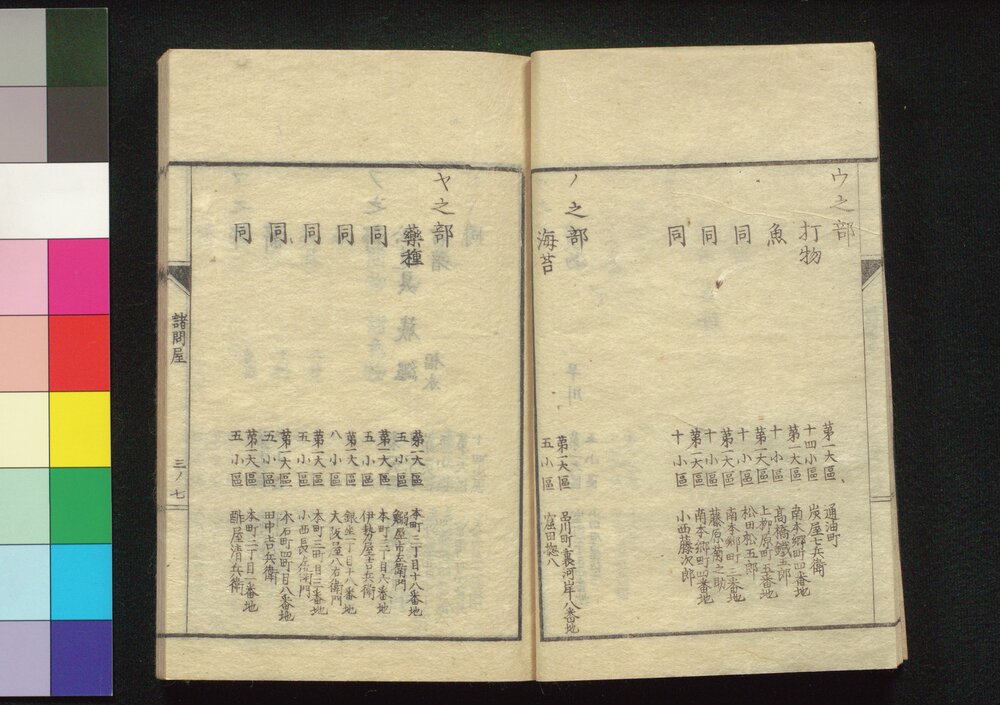 ウ之部
打物
第一大區
十四小區
通油町
炭屋七兵衛
魚
第一大區
十小區
南本郷町四番地
高橋鐵五郎
同
第一大區
十小區
上柳原町五番地
松田松五郎
同
第一大區
十小區
南本郷町二番地
藤原菊之助
同
第一大區
十小區
南本郷町四番地
小西藤次郎
ノ之部
海苔
第一大區
五小區
品川町裏河岸八番地
窪田惣八
ヤ之部
藥種
第一大區
五小區
本町三丁目十八番地
鰯屋市左衛門
同
第一大區
五小區
本町三丁目六番地
伊勢屋吉兵衛
同
第一大區
八小區
銀坐二丁目十八番地
大阪屋八右衛門
同
第一大區
五小區
本町三丁目三番地
小西長左衛門
同
第一大區
五小區
本石町四町目八番地
田中吉兵衛
同
第一大區
五小區
本町三丁目二番地
酢屋清兵衛
諸問屋
三ノ七